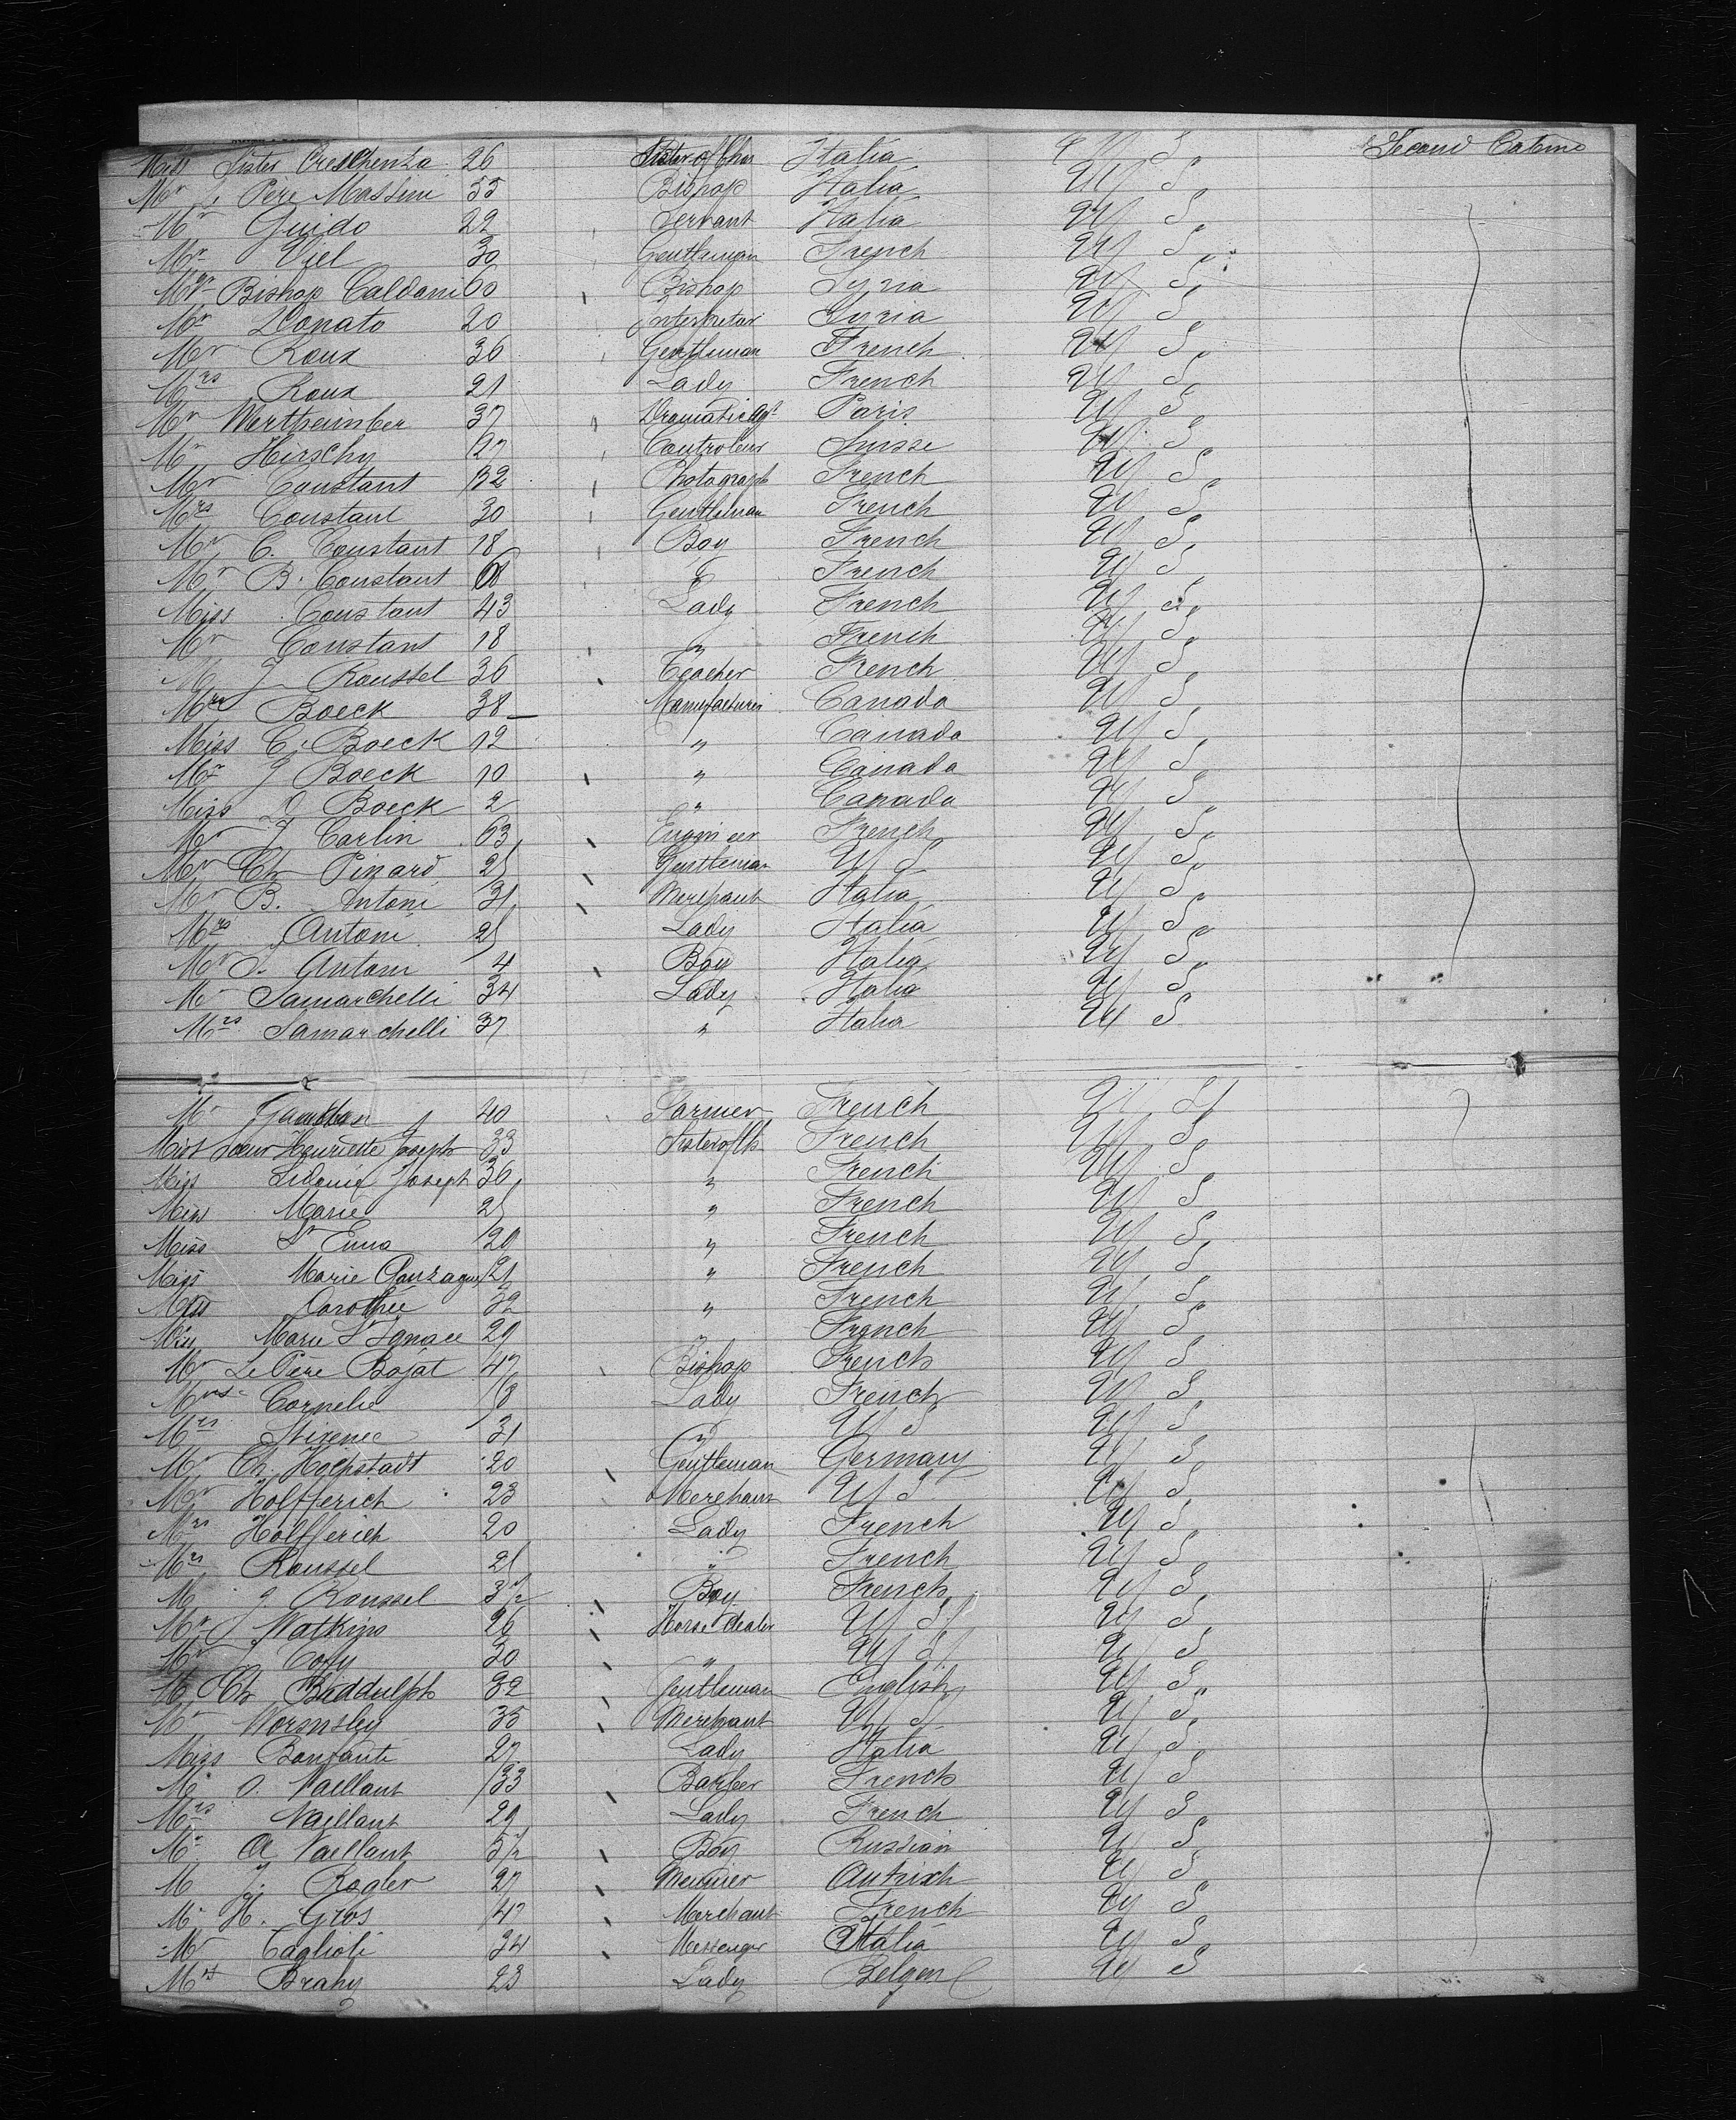 Miss Sister Creschenza 26 Sister of Char Italia U S, Second Cabine
Mr Le Père Massini 35 Bishop Italia U S,
Mr Guido 22 Servant Italia U S,
Mr Viel 30 Gentleman French U S,
Mr Bishop Caldani 60 Bishop Syria U S,
Mr Donato 20 Interpretor Syria U S,
Mr Roux 36 Gentleman French U S,
Mrs Roux 21 Lady French U S,
Mr Wertheimber 37 Dramatic Agt Paris U S,
Mr Hirschy 27 Controleur Suisse U S,
Mr Constant 32 Photograph French U S,
Mrs Constant 30 Gentleman French U S,
Mr C. Constant 18 Boy French U S,
Mr B. Constant " French U S
Miss Constant 43 Lady French U S,
Mr Constant 18 " French U S,
M J Roussel 36 Teacher French U S,
Mrs Boeck 38 Manufacturer Canada U S,
Miss C. Boeck 12 " Canada U S,
Mr J Boeck 10 " Canada U S,
Miss D Boeck 2 " Canada U S,
Mr J Carlin 63 Engineer French U S,
Mr Ch Pinard 25 Gentleman U S U S,
Mr B. Antoni 31 Merchant Italia U S,
Mrs Antoni 25 Lady Italia U S,
Mr J. Antoni 4 Boy Italia U S,
Mr Samarchelli 34 Lady Italia U S,
Mrs Samarchelli 37 " Italia U S
Mr 40 Farmer French U S
Miss Soeur Henriette Joseph 33 Sister of Ch French U S,
Miss Joseph 36 " French U S,
Miss Marie 25 " French U S,
Miss St Enna 29 " French U S,
Miss Marie Gonzague 21 " French U S,
Miss Dorothée 32 " French U S,
Miss Marie St Ignace 29 " French U S
Mr Le Père Bojat 47 Bishop French U S,
Mrs Cornelie 18 Lady French U S,
Mrs 31 " U S U S,
Mr Ch. Hochstadt 20 Gentleman Germany U S,
Mr Holfferich 23 Merchant U S U S,
Mrs Holfferich 20 Lady French U S,
Mrs Roussel 25 " French U S,
M J Roussel 3 1/2 Boy French U S,
Mr J Watkins 26 Horse Dealer U S U S
Mr J Cory 30 " U S U S
M Ch Biddulph 32 Gentleman English U S,
Mr Wormsley 35 Merchant U S U S,
Miss Bonfanti 27 Lady Italia U S,
Mr O. Vaillant 33 Barber French U S
Mrs Vaillant 29 Lady French U S,
Mr A Vaillant 5/2 Boy Russian U S,
M J. Rogler 27 Autrich U S
Mr H. Gros 47 Merchant French U S
Mr Taglioli 34 Messenger Italia U S,
Mrs Brahy 23 Lady Belgen U S